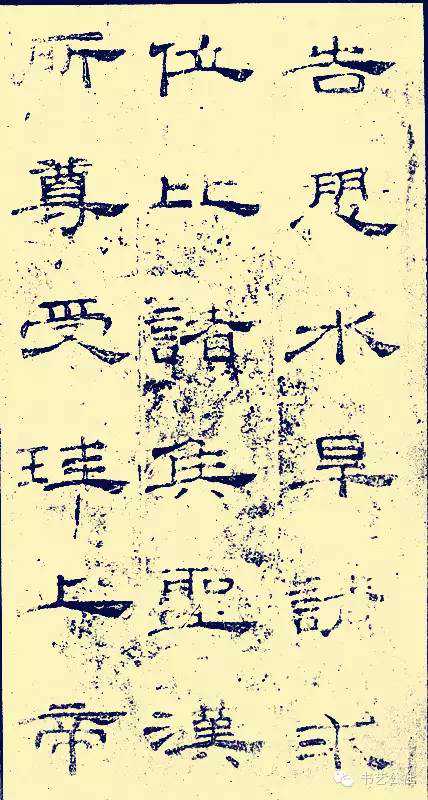 告愬水旱請求
位比諸侯聖漢
所尊受珪上帝
书艺公社